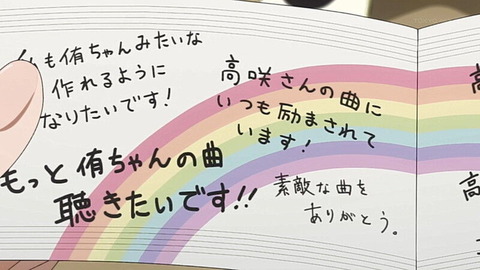 も侑ちゃんみたいな
作れるように
なりたいです!
もっと侑ちゃんの曲
聴きたいです!!
高咲さんの曲に
いつも励まされて
います!
素敵な曲を
ありがとう。
高